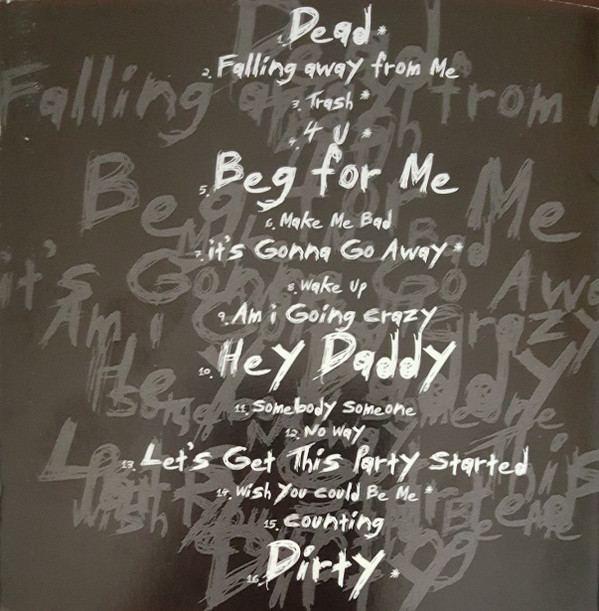 1. Dead *
2. Falling away from Me
3. Trash *
4. 4 U *
5. Beg for Me
6. Make Me Bad
7. it's Gonna Go Away *
8. Wake Up
9. Am i Going crazy
10. Hey Daddy
11. Somebody Someone
12. No Way
13. Let's Get This Party Started
14. Wish You could Be Me *
15. counting
16. Dirty *